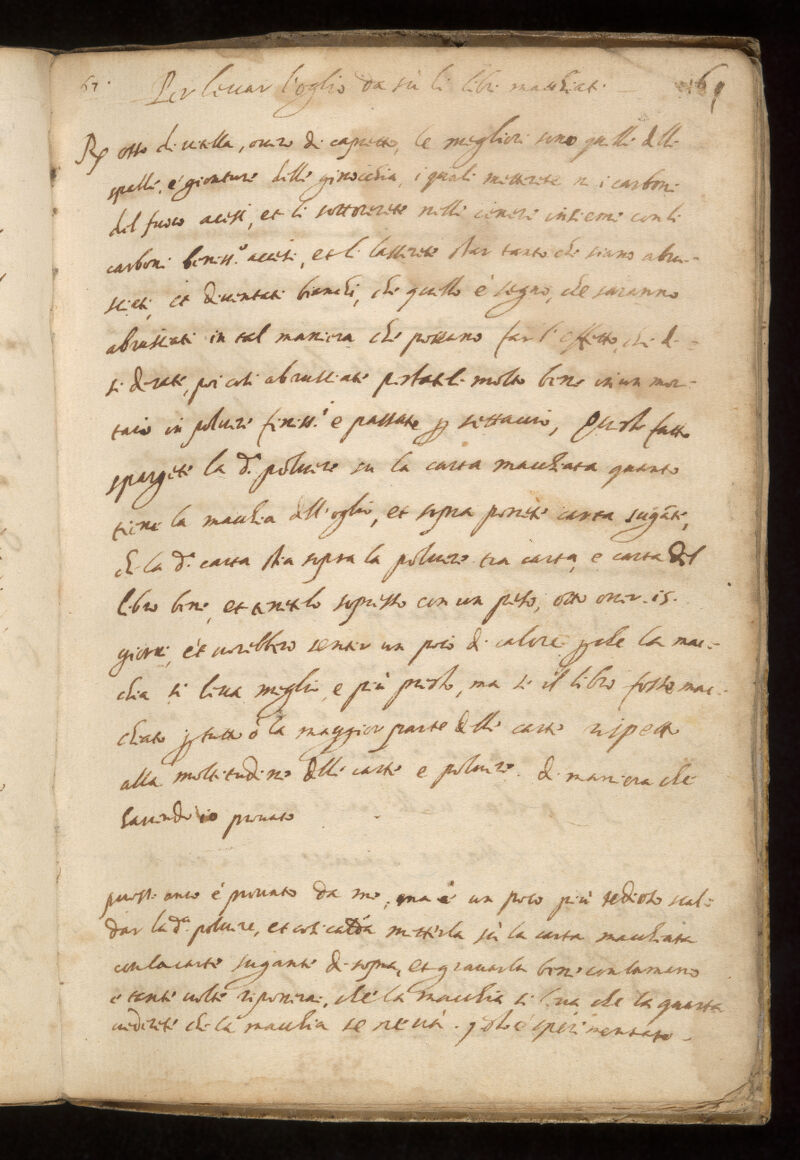 67. Per levar l'oglio da sù li libri machiati. — 69
Rx osso di vitella, overo di capretto, le megliori sono quelle delle
spalle, e gionture delle ginocchia, i quali metterete ne i carboni
del fuoco acesi, et li sottorerete nelle cenere insieme con li
carboni beniss.o accesi, et li lasserete star tanto che siano abru-
sciati, et diventati bianchi, che questo è segno, che saranno
abrusciati in tal maniera che possano far l'effetto, che de-
siderate, poi così abrussiate pestateli molto bene in un mor-
taio in polvere finiss.a e passate p settaccio, Questo fatto
spargete la d.a polvere su la carta macchiata quanto
tiene la macchia dell'oglio, et sopra ponete carta sugante,
che la d.a carta stia sopra la polvere tra carta, e carta del
libro bene, et tenetelo sopresso con un peso, otto over 15.
giorni, et vorebbero sentir un poco di calore p che la mac-
chia si leva meglio, e più presto, ma se il libro fosse mac-
chiato p tutto ò la maggior parte delle carte rispetto
alla moltitudine delle carte e polvere. di maniera che
havendo io provato
questo anco è provato da me, ma è un poco più tedioso scal-
dar la d.a polvere, et così calda metterla sù la carta macchiata
con la carta sugante di sopra, et gravarla bene con la mano
e tante volte riponerai, che la macchia si leva che la quarta
vederete che la macchia se ne và. q.sto è sperimentato.